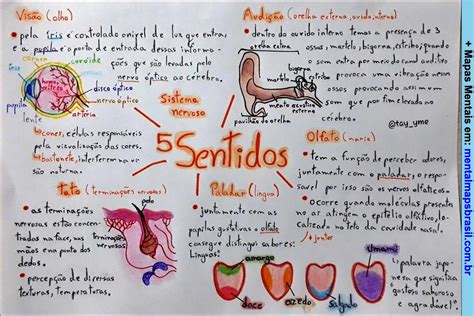 Visão (olho)
• pela íris é controlado o nível de luz que entra,
e a pupila é a porta de entrada dessas informa-
ções que são levadas pelo
nervo óptico ao cérebro.
córnea
coroide
íris
humor vítreo
disco óptico
nervo óptico
pupila
lente
artéria
↳ cones, células responsáveis
pela visualização das cores.
↳ bastonete, interferem na vi-
são noturna.
Audição (orelha externa, ouvido interno)
• dentro do ouvido interno temos a presença de 3
orelha externa
ossos, martelo, bigorna, estribo; quando
o som entra por meio do canal auditivo
provoca uma vibração nesses
ossos provocando assim um
som que por fim é levado ao
cérebro.
bigorna
martelo
estribo
meato acústico externo
pavilhão da orelha
@tay_yme
Sistema
nervoso
5 Sentidos
Olfato (nariz)
• tem a função de perceber odores,
juntamente com o paladar; o respon-
sável por isso são os nervos olfativos.
• ocorre quando moléculas presentes
no ar atingem o epitélio olfativo, lo-
calizado no teto da cavidade nasal.
Tato (terminações nervosas)
• as terminações
nervosas estão concen-
tradas na face, nas
mãos e na ponta dos
dedos.
• percepção de diversas
texturas, temperaturas.
pelo
terminações
nervosas
Paladar (língua)
• juntamente com as
papilas gustativas o olfato
consegue distinguir sabores:
Línguas:
+ junior
amargo
doce
azedo
salgado
Umami
↳ palavra japone-
sa que significa
"gostoso saboroso
e agradável"
+ Mapas Mentais em: mentalmapsbrasil.com.br